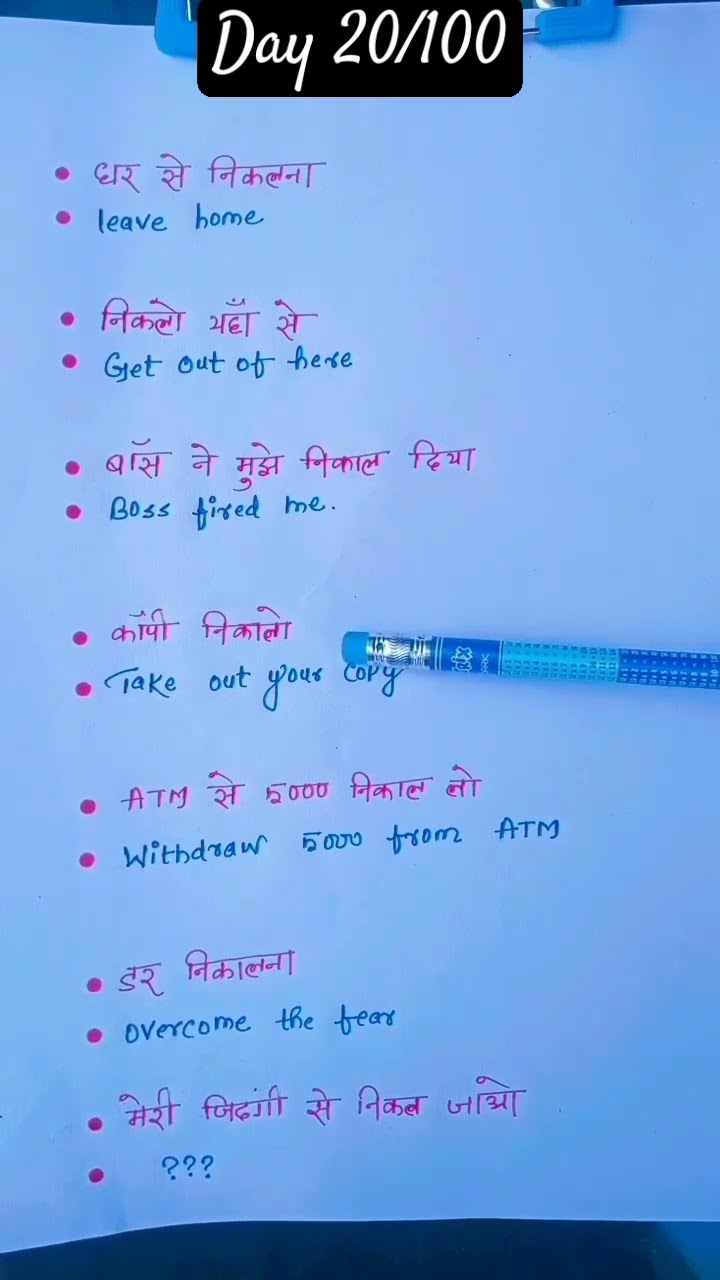 Day 20/100
• घर से निकलना
• leave home
• निकलो यहाँ से
• Get out of here
• बॉस ने मुझे निकाल दिया
• Boss fired me.
• कॉपी निकालो
• Take out your copy
• ATM से 5000 निकाल लो
• Withdraw 5000 from ATM
• डर निकालना
• overcome the fear
• मेरी जिदंगी से निकल जाओ
• ???